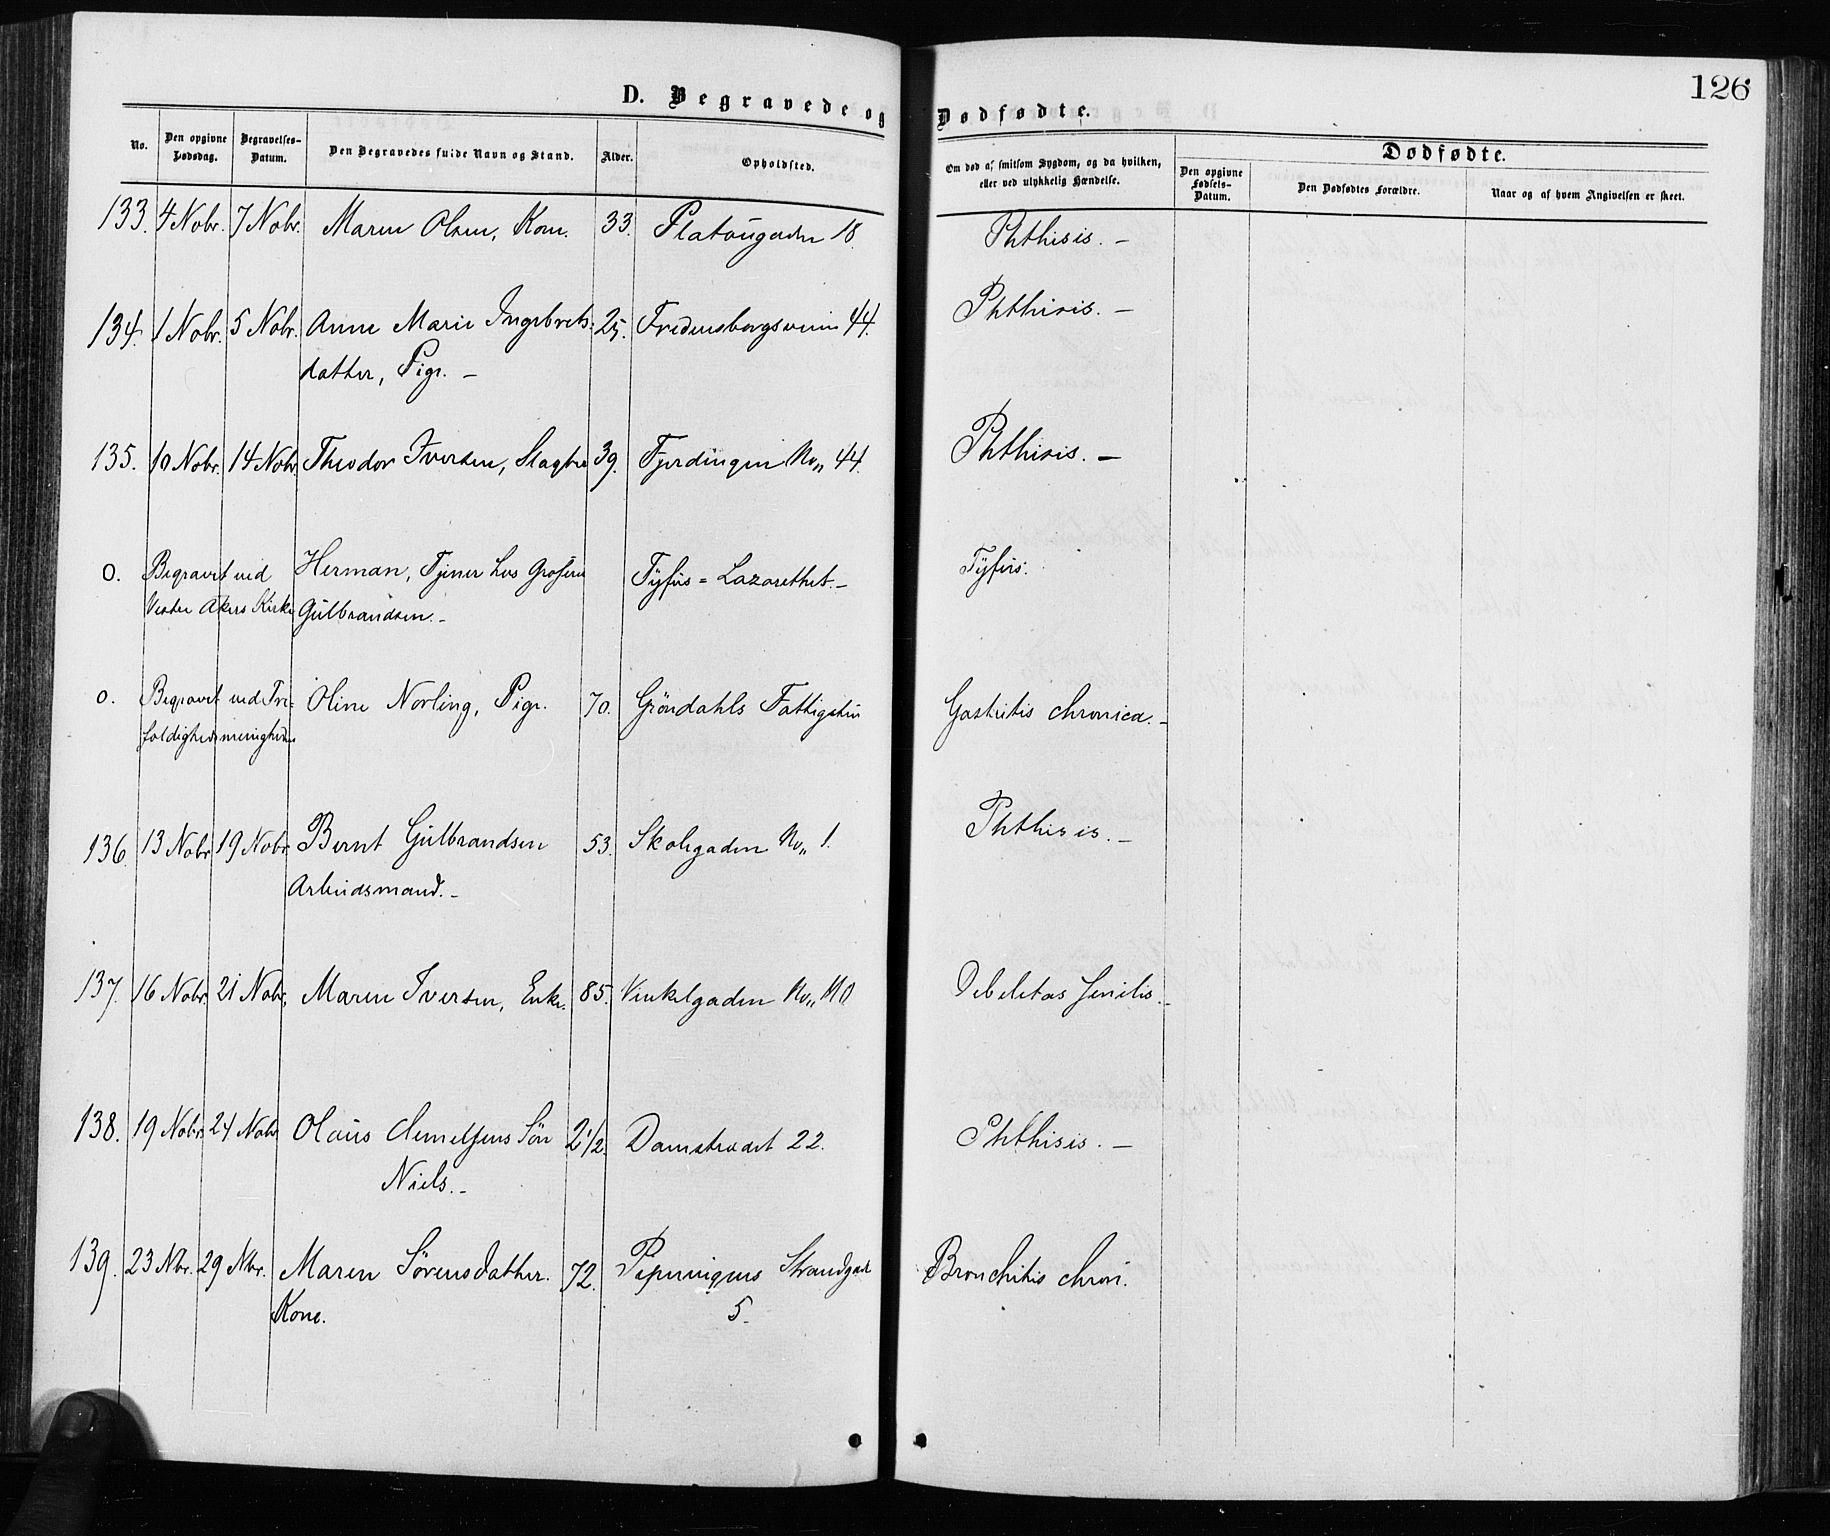 126
D. Begravede og Dødfødte.
No. Den opgivne Dødsdag. Begravelses-Datum. Den Begravedes fulde Navn og Stand. Alder. Opholdsted. Om død af smitsom Sygdom, og da hvilken, eller ved ulykkelig Hændelse. Dødfødte.
Den opgivne Fødsels-Datum. Den Dødfødtes Forældre. Naar og af hvem Angivelsen er skeet.
133. 4 Nobr. 7 Nobr. Maren Olsen, Kone. 33. Platougaden 18. Phthisis. –
134. 1 Nobr. 5 Nobr. Anne Marie Ingebrets- 25. Fredensborgsveien 44. Phthisis. –
datter, Pige. –
135. 10 Nobr. 14 Nobr Theodor Iversen, Slagter 39. Fjerdingen No„ 44. Phthisis. –
0. Begravet ved Herman, Tjener hos Grosserer Tÿfus = Lazarethet. – Tÿfus.
Vestre Akers Kirke Gulbrandsen. –
0. Begravet ved Tre- Oline Norling, Pige. 70. Gröndahls Fattigstu Gastritis chronica. –
foldighedsmenigheden
136. 13 Nobr 19 Nobr. Bernt Gulbrandsen 53. Skolegaden No„ 1. Phthisis. –
Arbeidsmand. –
137. 16 Nobr. 21 Nobr. Maren Iversen, Enke. 85. Vinkelgaden No„ 110 Debelitas senilis. –
138. 19 Nobr. 24 Nobr Olaus Clemetsens Sön 2 1/2. Damstrædet 22. Phthisis. –
Niels. –
139. 23 Nbr. 29 Nbr. Maren Sörensdatter. 72. Pipervigens Strandgad Bronchitis chron.
Kone. 5.